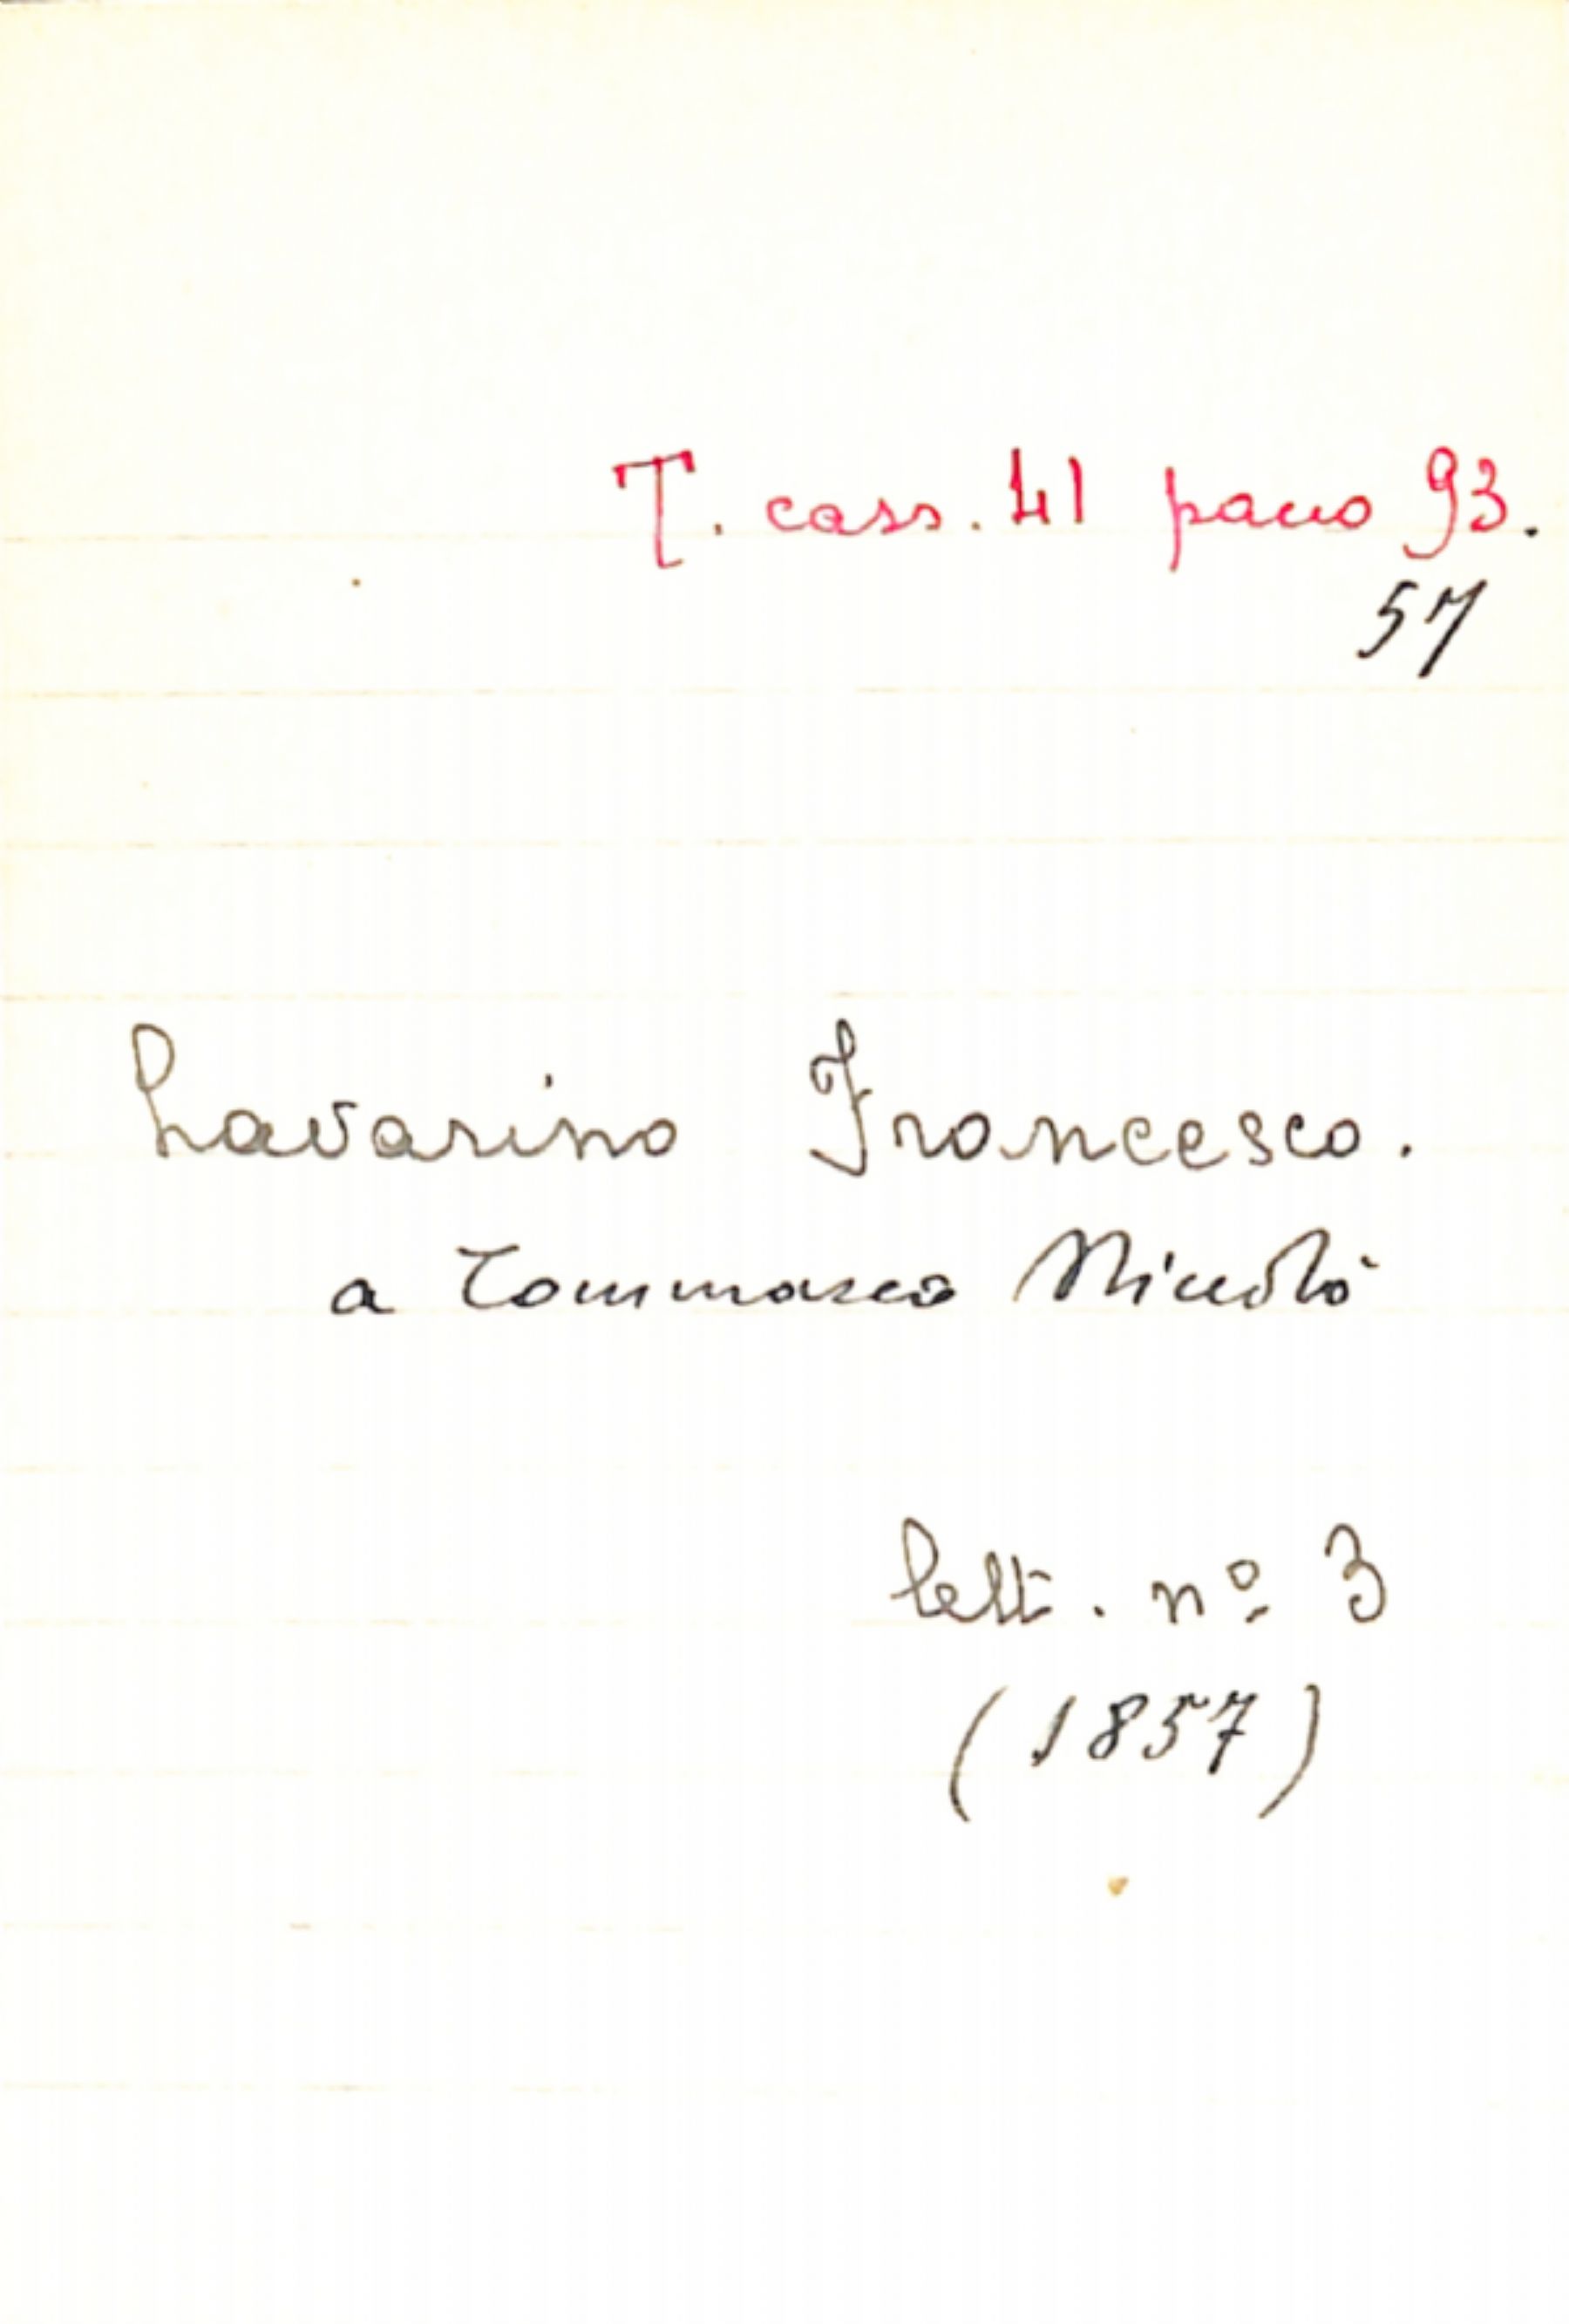 T. cass. 41 pacco 93.
57
Lavarino Francesco.
a Tommaseo Niccolò
lett. nº 3
(1857)